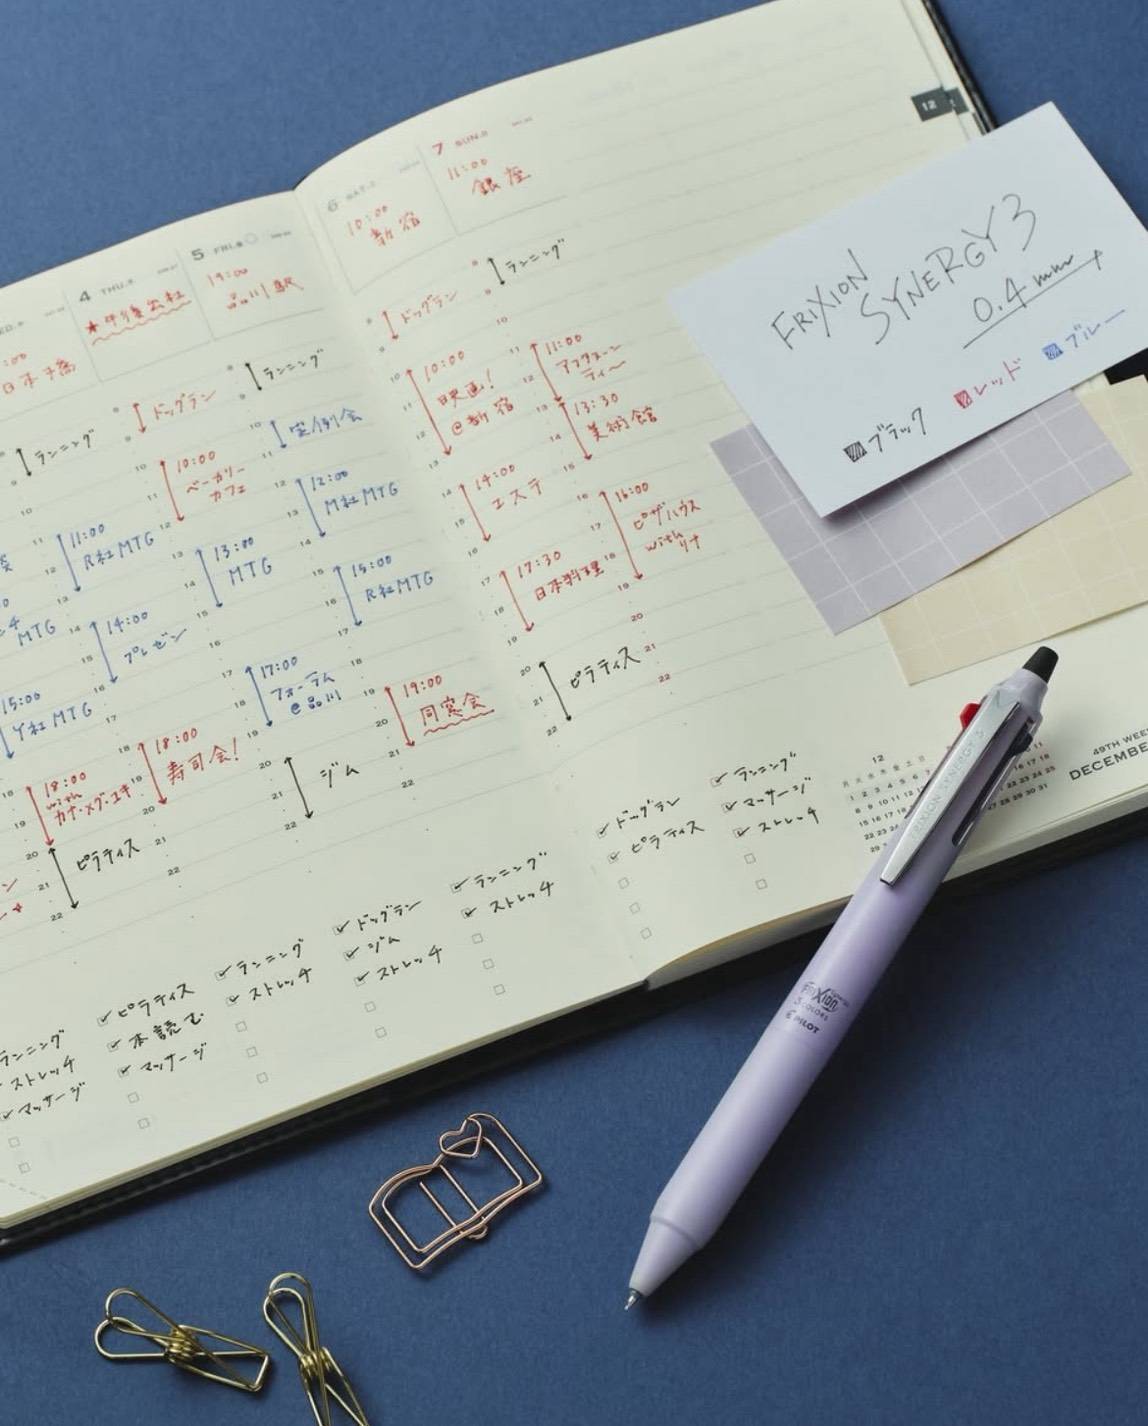 4 THU.
★午後出社
5 FRI.
19:00
品川駅
6 SAT.
10:00
新宿
7 SUN.
11:00
銀座
12
:00
日本橋
ランニング
11:00
R社MTG
14:00
プレゼン
18:00
with
カナ・メグ・ユキ
ピラティス
MTG
15:00
Y社MTG
ドッグラン
10:00
ベーカリー
カフェ
13:00
MTG
17:00
フォーラム
@品川
18:00
寿司会!
ランニング
定例会
12:00
M社MTG
15:00
R社MTG
19:00
同窓会
ジム
ドッグラン
10:00
映画!
@新宿
14:00
エステ
17:30
日本料理
ピラティス
ランニング
11:00
アフタヌーン
ティー
13:30
美術館
16:00
ピザハウス
withリナ
ランニング
ストレッチ
マッサージ
ピラティス
本読む
マッサージ
ランニング
ストレッチ
ドッグラン
ジム
ストレッチ
ランニング
ストレッチ
ドッグラン
ピラティス
ランニング
マッサージ
ストレッチ
12
49TH WEE
DECEMBE
FRIXION
SYNERGY 3
0.4mm
ブラック
レッド
ブルー
FRIXION SYNERGY 3
FRIXION
3 COLORS
PILOT